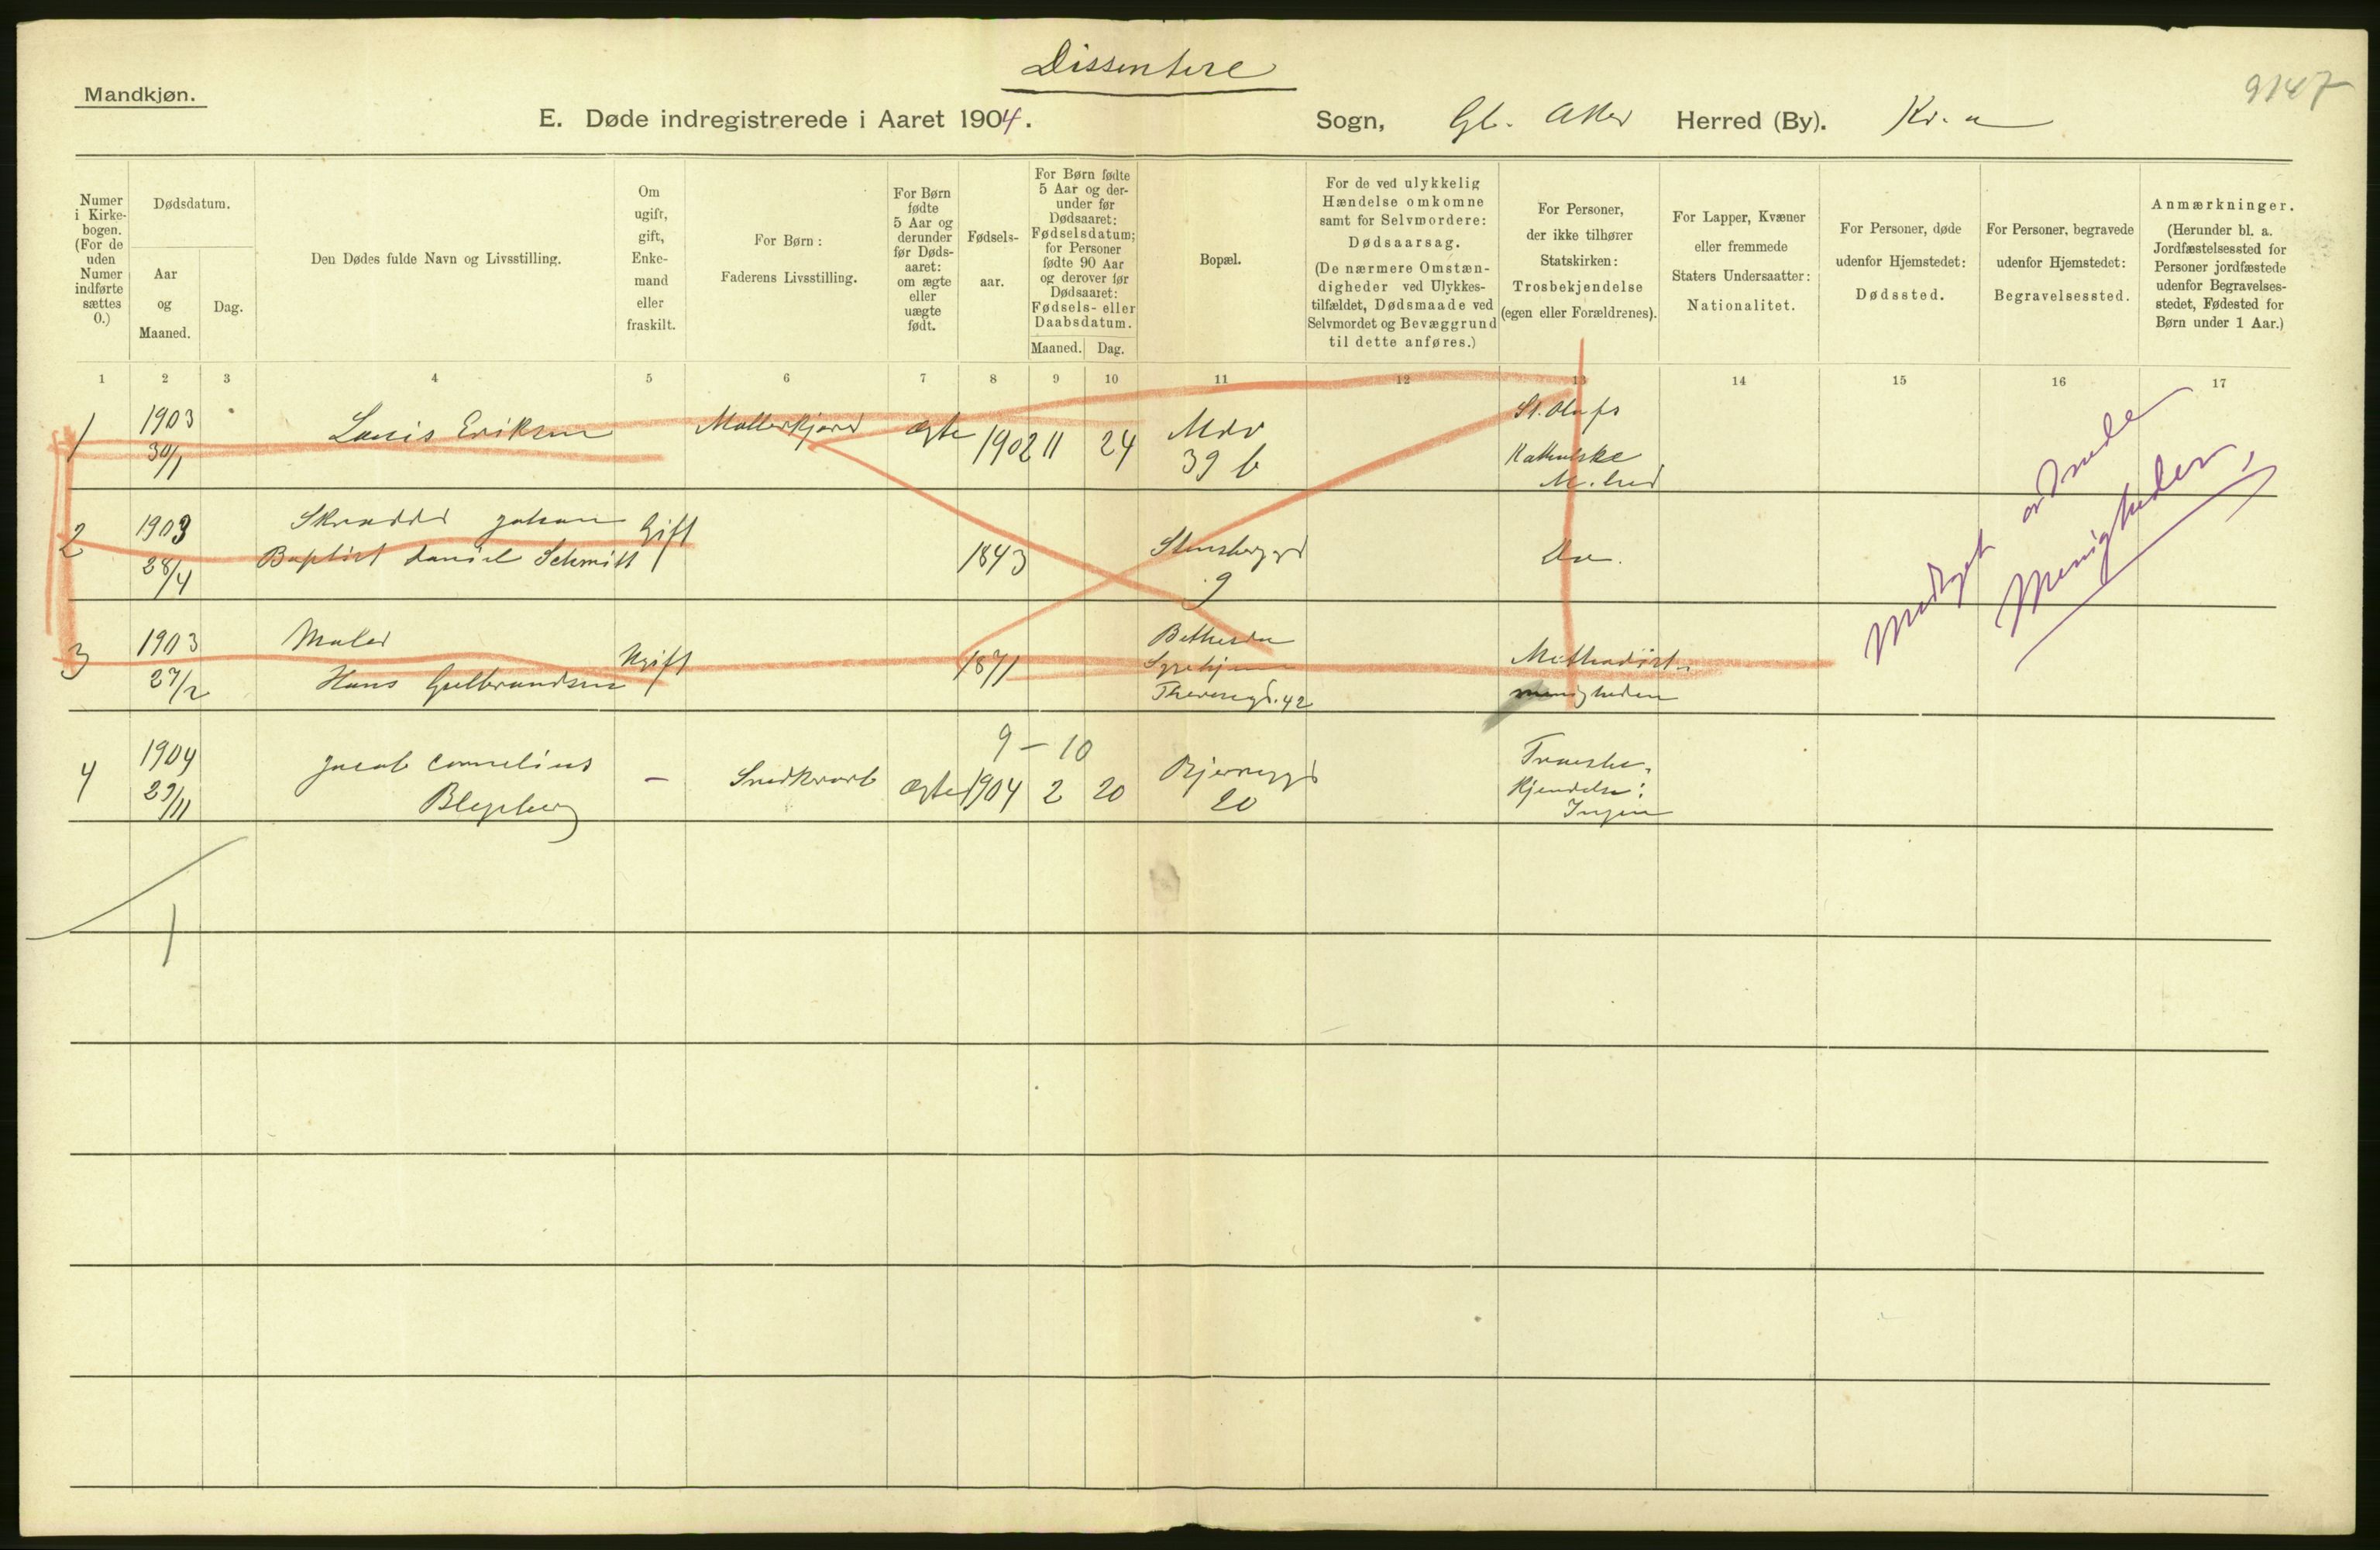 Dissentere
9147
Mandkjøn.
E. Døde indregistrerede i Aaret 1904.
Sogn, Gl. Aker Herred (By). Kr.a
Numer i Kirkebogen. (For de uden Numer indførte sættes 0.)
Dødsdatum.
Aar og Maaned.
Dag.
Den Dødes fulde Navn og Livsstilling.
Om ugift, gift, Enkemand eller fraskilt.
For Børn:
Faderens Livsstilling.
For Børn fødte 5 Aar og derunder før Dødsaaret: om ægte eller uægte født.
Fødselsaar.
For Børn fødte 5 Aar og derunder før Dødsaaret: Fødselsdatum; for Personer fødte 90 Aar og derover før Dødsaaret: Fødsels- eller Daabsdatum.
Maaned. Dag.
Bopæl.
For de ved ulykkelig Hændelse omkomne samt for Selvmordere: Dødsaarsag.
(De nærmere Omstændigheder ved Ulykkestilfældet, Dødsmaade ved Selvmordet og Bevæggrund til dette anføres.)
For Personer, der ikke tilhører Statskirken: Trosbekjendelse (egen eller Forældrenes).
For Lapper, Kvæner eller fremmede Staters Undersaatter: Nationalitet.
For Personer, døde udenfor Hjemstedet: Dødssted.
For Personer, begravede udenfor Hjemstedet: Begravelsessted.
Anmærkninger.
(Herunder bl. a. Jordfæstelsessted for Personer jordfæstede udenfor Begravelsesstedet, Fødested for Børn under 1 Aar.)
1 2 3 4 5 6 7 8 9 10 11 12 13 14 15 16 17
1 1903 30/1 Louis Eriksen Møllerkjører Ægte 1902 11 24 39 b St. Olafs Katholske M.hed
2 1903 28/4 Skrædder Johan Baptist Daniel Schmitt Gift 1843 Stensberggd 9 Do.
3 1903 27/2 Maler Hans Gulbrandsen Ugift 1871 Bethesda Sygehjem Theresegd. 42 Methodistmenigheden
9 – 10
4 1904 29/11 Jacob Cornelius – Snedkerarb Ægte 1904 2 20 Bjerregd 20 Troesbekjendelse: Ingen
Medtaget under
Menigheden.
1